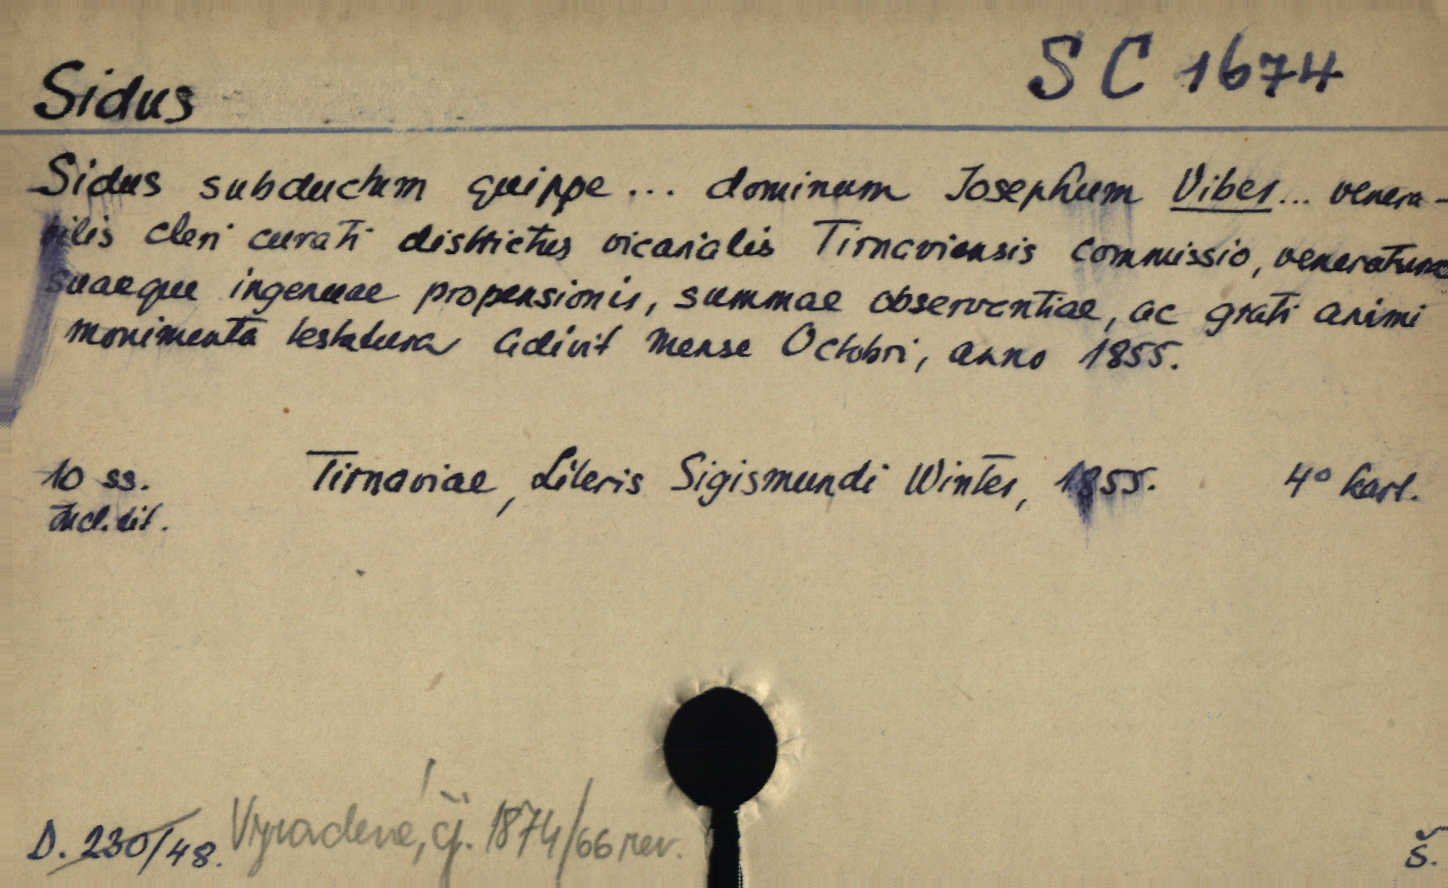 SC 1674
Sidus
Sidus subductum quippe ... dominum Josephum Viber ... venera-
bilis cleri curati districtus vicarialis Tirnaviensis commissio, veneratum
suaeque ingenuae propensionis, summae observantiae, ac grati animi
monimenta testatura adivit mense Octobri, anno 1855.
10 ss. Tirnaviae, Literis Sigismundi Winter, 1855. 4° kart.
incl. tit.
D. 230/48. Vyradené, čj. 1874/66 rev. š.